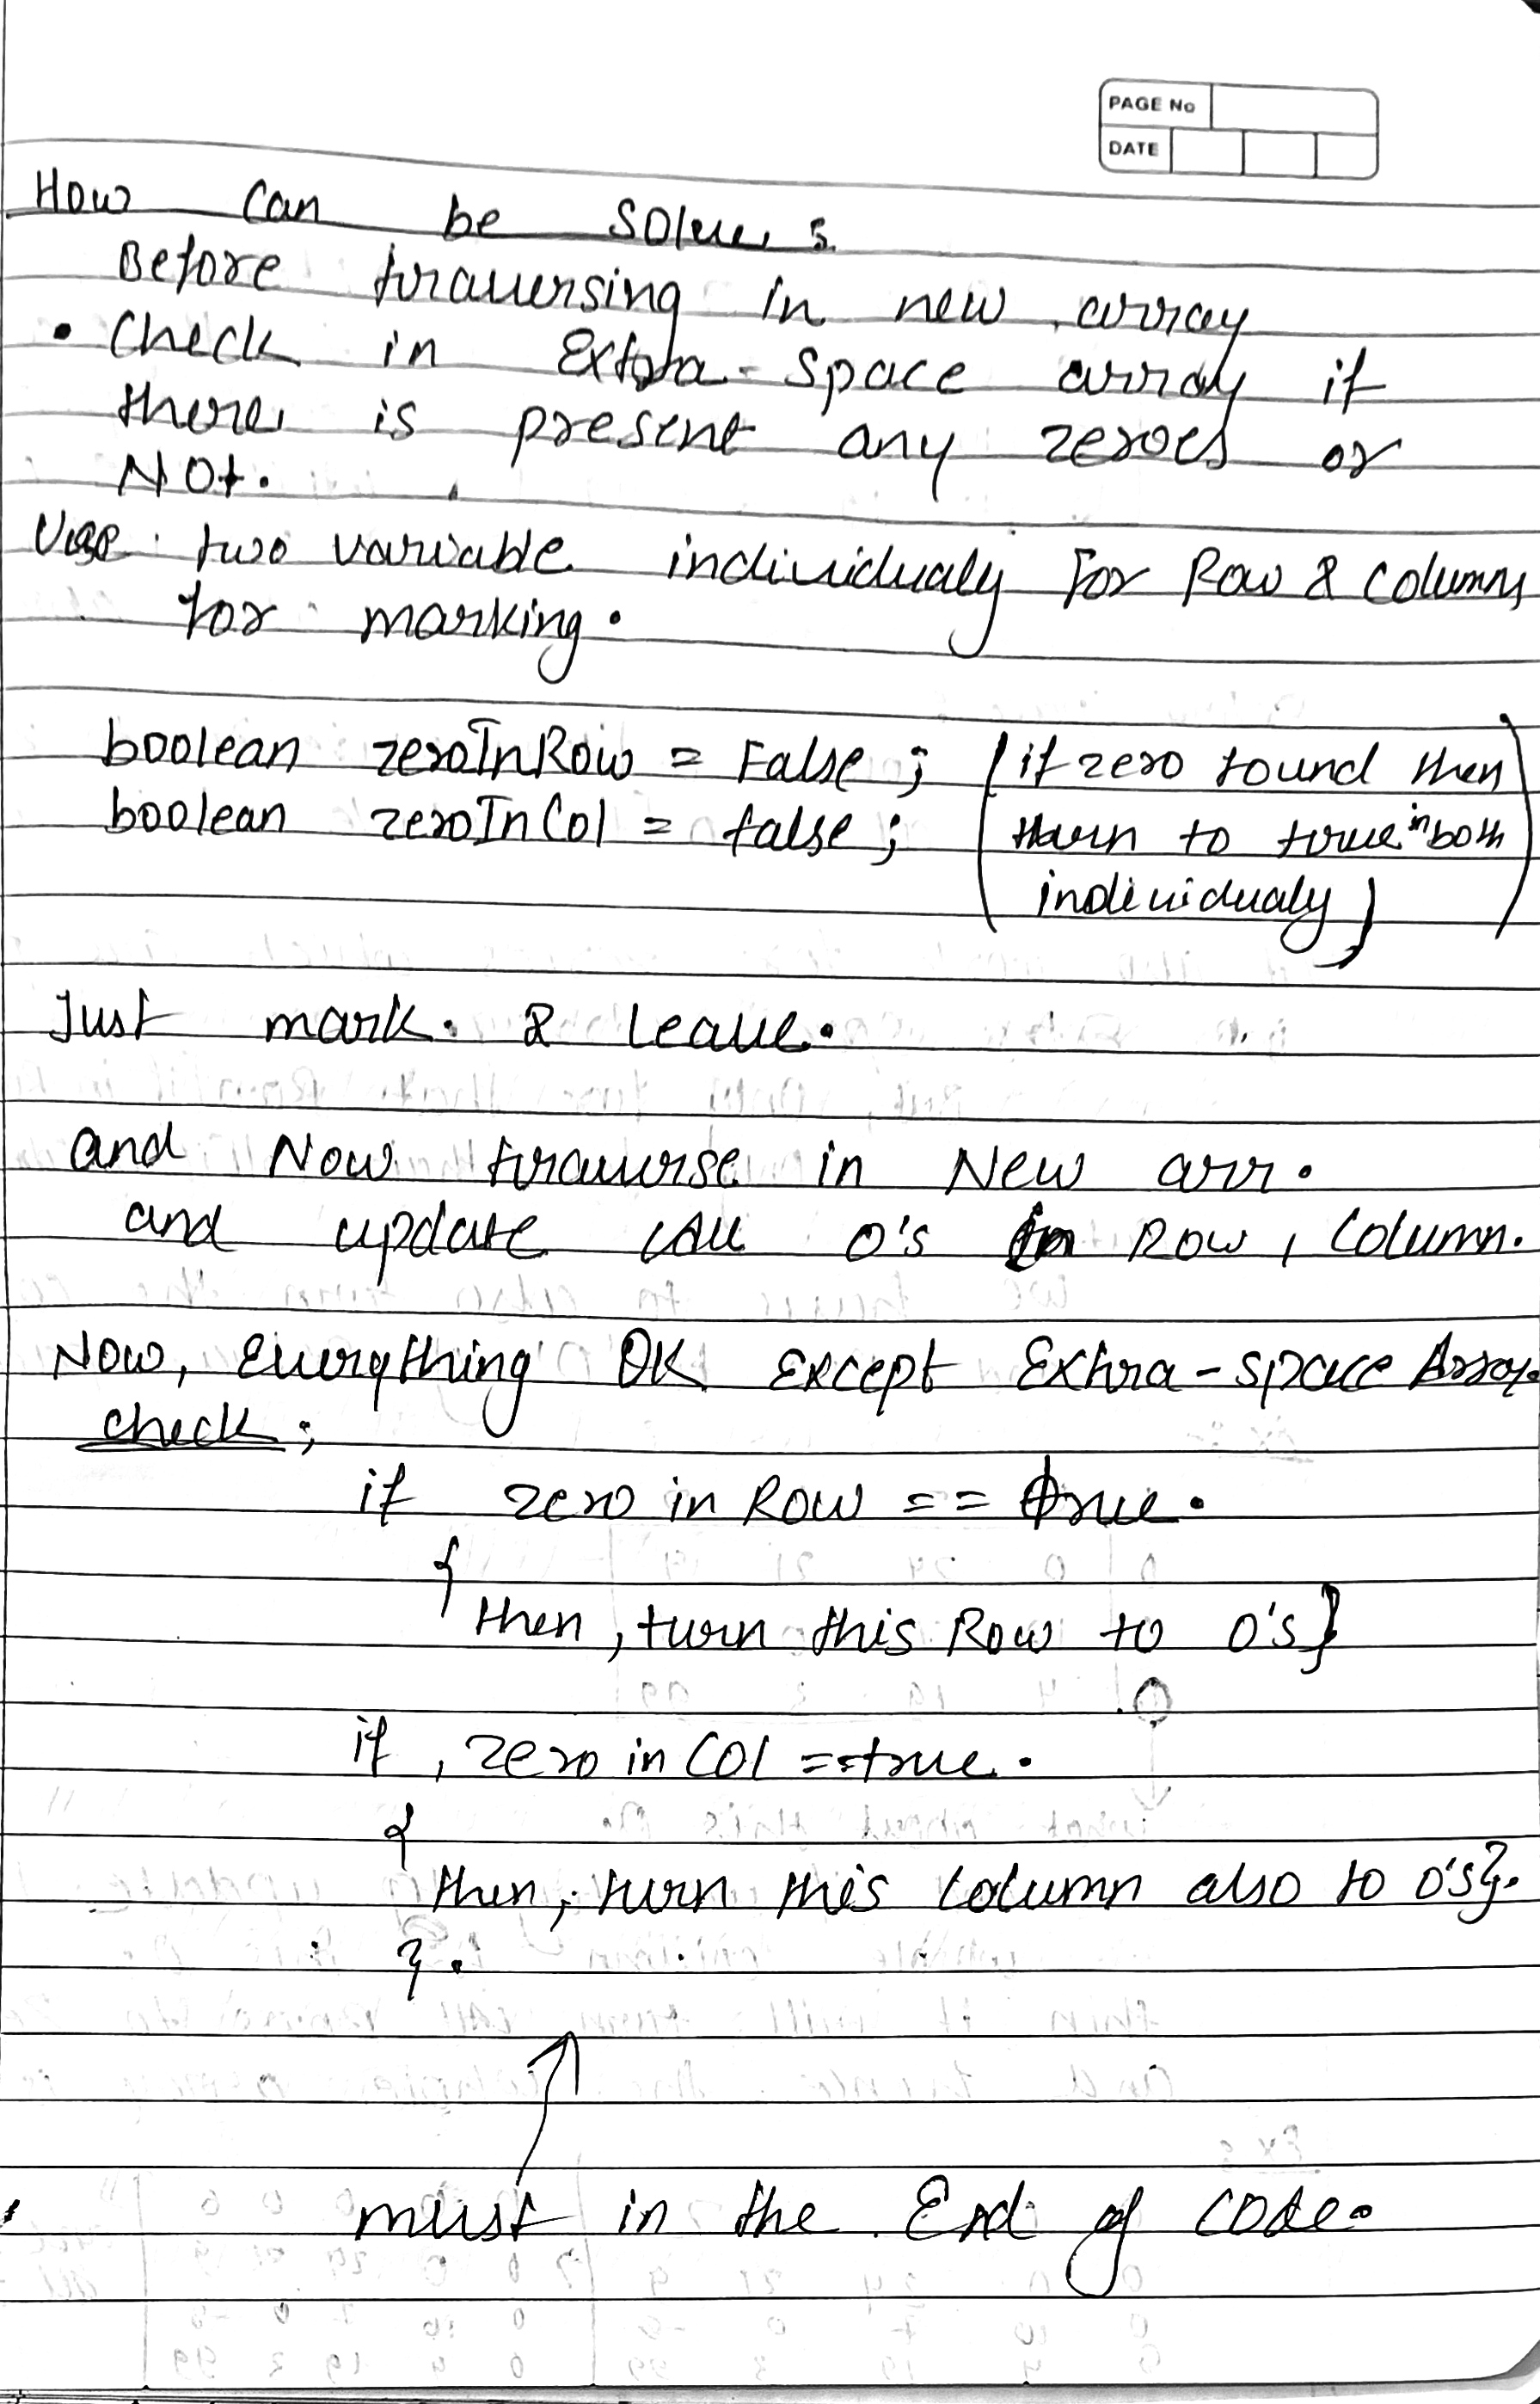 PAGE No
DATE
How can be solve :
Before traversing in new array
• Check in Extra-space array if
there is present any zeroes or
Not.
Use two variable individualy For Row & Columns
for marking.
boolean zeroInRow = False ; (if zero found then
boolean zeroInCol = false ; turn to true in both
individualy)
Just mark. & leave.
and Now traverse in New arr.
and update all 0's in Row, Column.
Now, Everything OK Except Extra-space Array.
check ;
if zero in Row == true.
{
then, turn this Row to 0's}
if, zero in Col == true.
{
then, turn this column also to 0's}.
}.
must in the End of code.